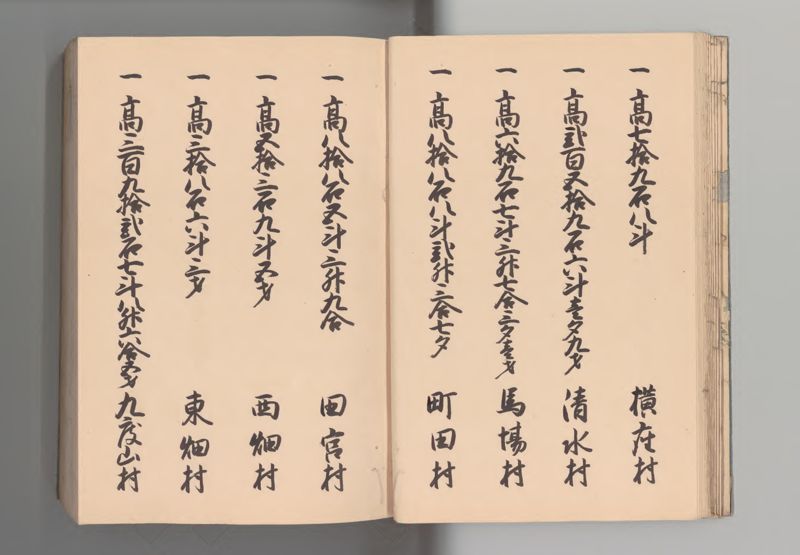 一 高七拾九石八斗 横座村
一 高弐百五拾九石六斗壱夕九才 清水村
一 高六拾九石七斗三升七合三夕壱才 馬場村
一 高八拾八石八斗弐升三合七夕 町田村
一 高八拾八石五斗三升九合 田宮村
一 高五拾三石九斗五才 西畑村
一 高三拾八石六斗三才 東畑村
一 高三百九拾弐石七斗八升六合五才 九度山村